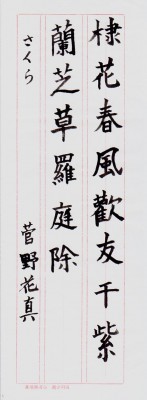 棣花春風歡友干紫
蘭芝草羅庭除
さくら
菅野花真